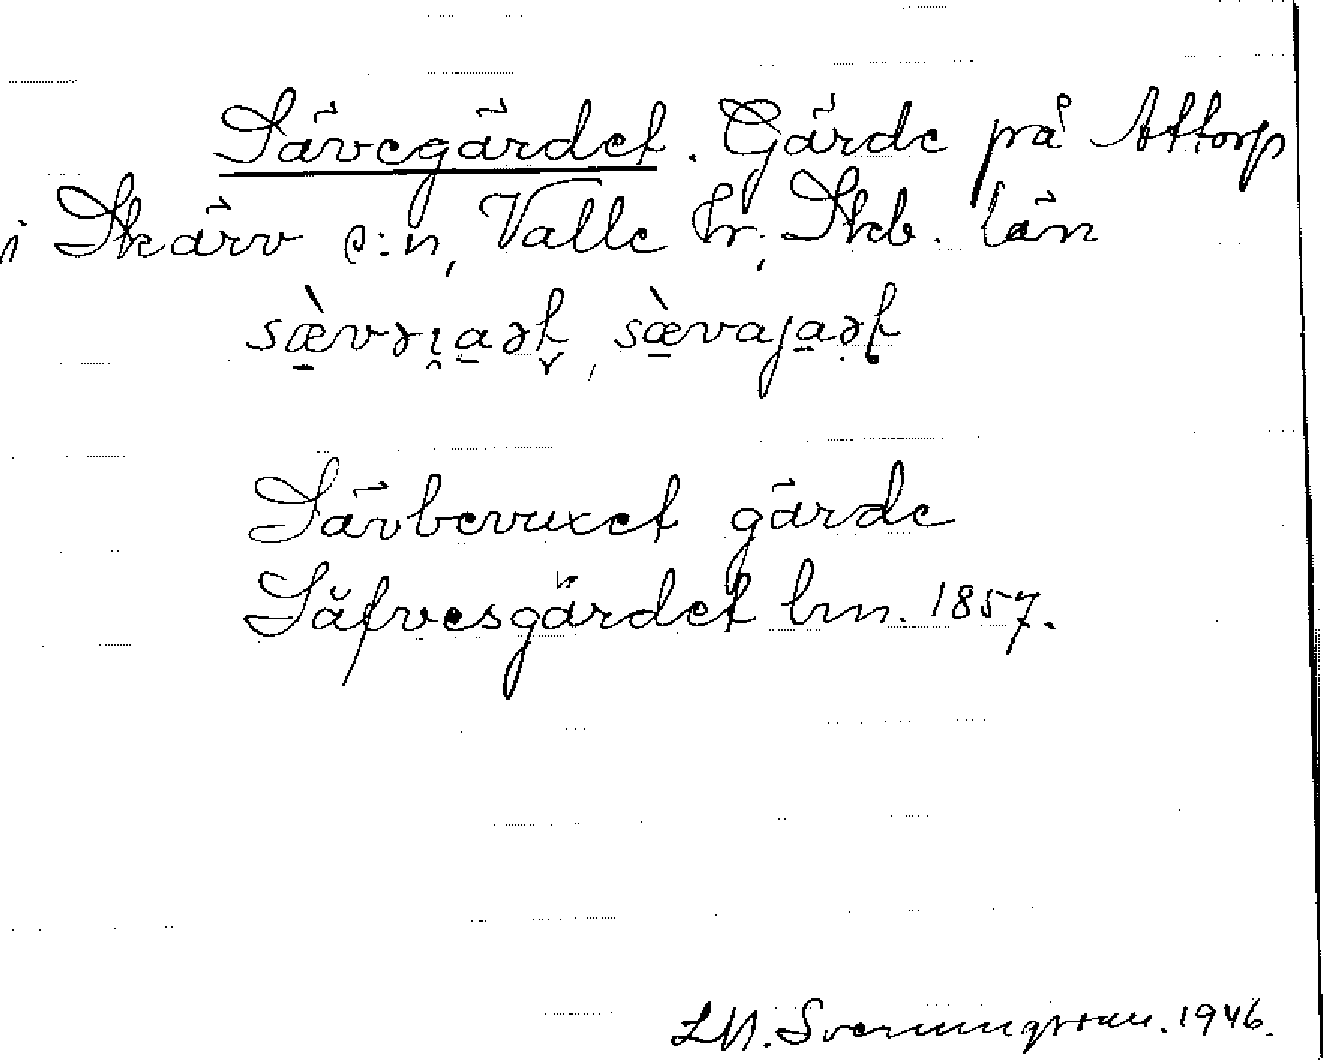 Sävegärdet. Gärde på Attorp
i Skärv s:n, Valle hr; Skb. län
sæ̀vəɪ̯a̠ət, sæ̀vaja̠ət
Sävbevuxet gärde
Säfvesgärdet lm. 1857.
Sverningsson. 1946.